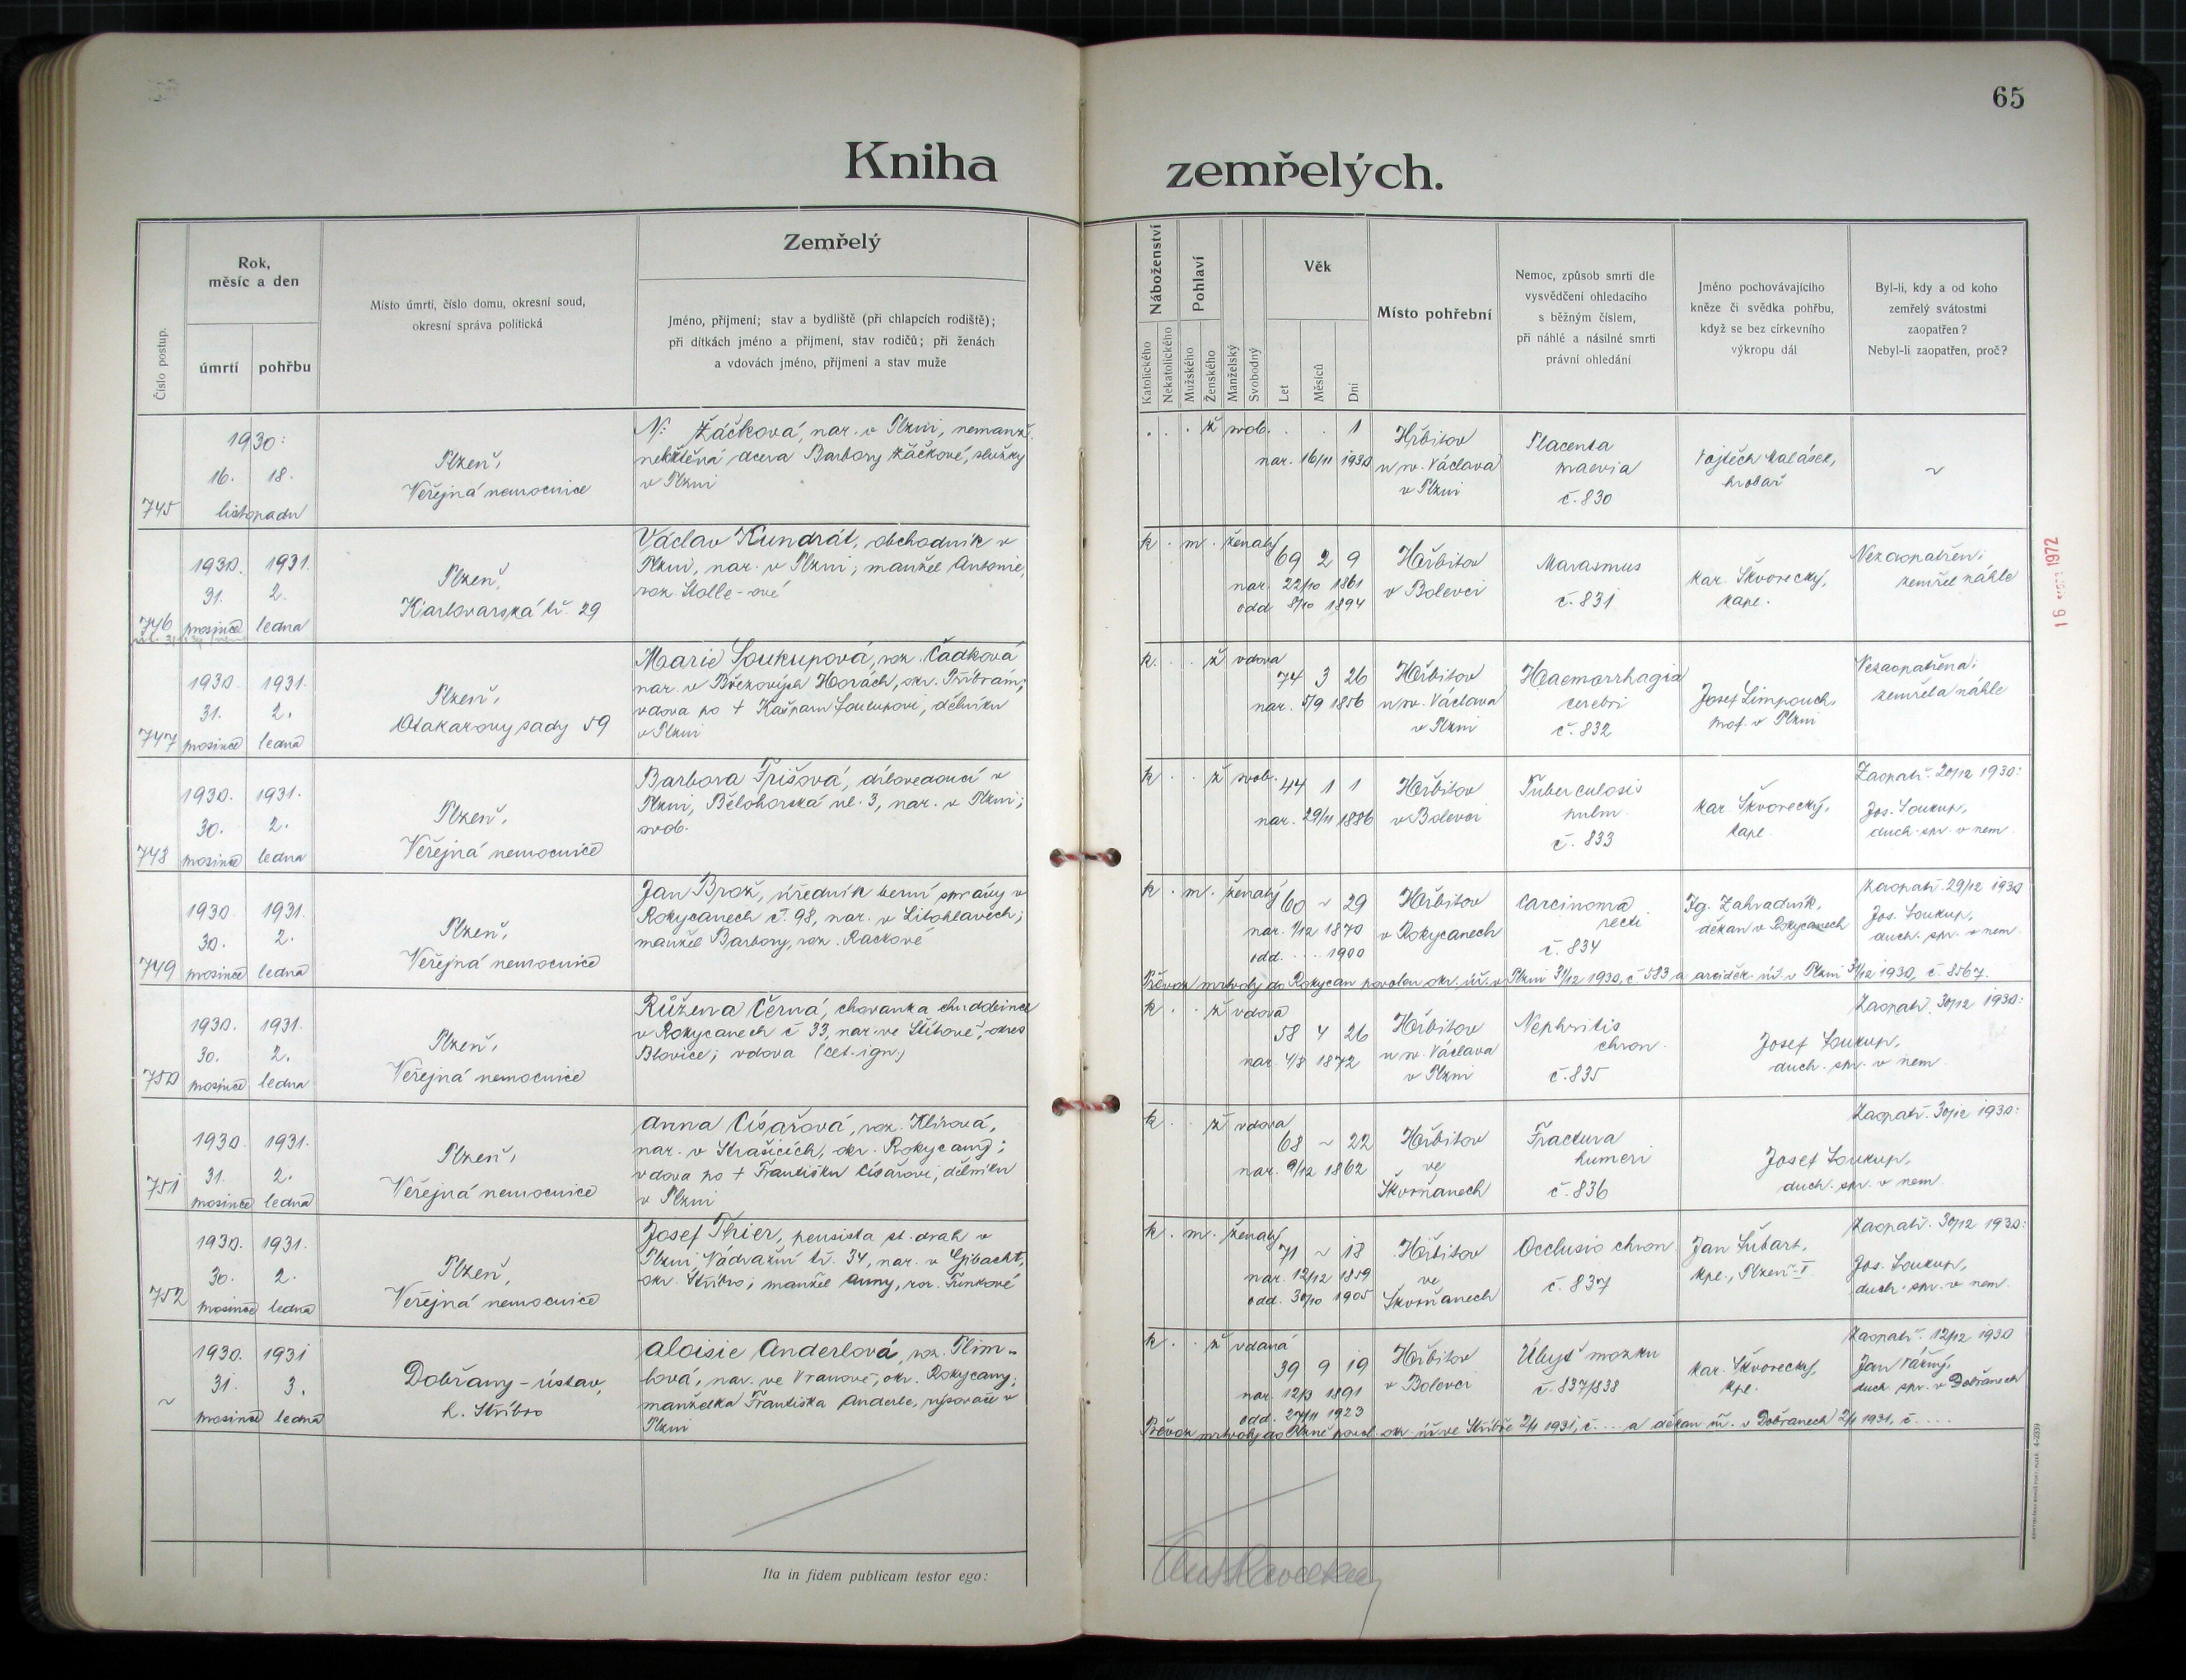 65
Kniha zemřelých.
Číslo postup.
Rok,
měsíc a den
úmrtí
pohřbu
Místo úmrtí, číslo domu, okresní soud,
okresní správa politická
Zemřelý
Jméno, příjmení; stav a bydliště (při chlapcích rodiště);
při dítkách jméno a příjmení, stav rodičů; při ženách
a vdovách jméno, příjmení a stav muže
Náboženství
Katolického
Nekatolického
Pohlaví
Mužského
Ženského
Manželský
Svobodný
Věk
Let
Měsíců
Dní
Místo pohřební
Nemoc, způsob smrti dle
vysvědčení ohledacího
s běžným číslem,
při náhlé a násilné smrti
právní ohledání
Jméno pochovávajícího
kněze či svědka pohřbu,
když se bez církevního
výkropu dál
Byl-li, kdy a od koho
zemřelý svátostmi
zaopatřen?
Nebyl-li zaopatřen, proč?
745
1930:
16. 18.
listopadu
Plzeň,
Veřejná nemocnice
N: Žáčková, nar. v Plzni, nemanž.
nekřtěná dcera Barbory Žáčkové, služky
v Plzni
. . . ž svob. . . 1
nar. 16/11 1930
Hřbitov
u sv. Václava
v Plzni
Placenta
praevia
č. 830
Vojtěch Kalásek,
hrobař
~
746
1930. 1931.
31. 2.
prosince ledna
Plzeň,
Karlovarská tř. 29
Václav Kundrát, obchodník v
Plzni, nar. v Plzni; manžel Antonie,
roz. Stolle-ové
k . m . ženatý
69 2 9
nar. 22/10 1861
odd. 8/10 1894
Hřbitov
v Bolevci
Marasmus
č. 831
Kar. Škvorecký,
kapl.
Nezaopatřen;
zemřel náhle
747
1930. 1931.
31. 2.
prosince ledna
Plzeň,
Otakarovy sady 59
Marie Soukupová, roz. Čadková
nar. v Březových Horách, okr. Příbram;
vdova po + Kašparu Soukupovi, dělníku
v Plzni
k. . . ž vdova
74 3 26
nar. 5/9 1856
Hřbitov
u sv. Václava
v Plzni
Haemorrhagia
cerebri
č. 832
Josef Limpouch,
prof. v Plzni
Nezaopatřena;
zemřela náhle
748
1930. 1931.
30. 2.
prosince ledna
Plzeň,
Veřejná nemocnice
Barbora Frišová, dílovedoucí v
Plzni, Bělohorská ul. 3, nar. v Plzni;
svob.
k . . ž svob.
44 1 1
nar. 29/11 1886
Hřbitov
v Bolevci
Tuberculosis
pulm.
č. 833
Kar. Škvorecký,
kapl.
Zaopatř. 20/12 1930:
Jos. Soukup,
duch. spr. v nem.
749
1930. 1931.
30. 2.
prosince ledna
Plzeň,
Veřejná nemocnice
Jan Brož, úředník berní správy v
Rokycanech č. 98, nar. v Litohlavech;
manžel Barbory, roz. Rackové
k . m . ženatý
60 ~ 29
nar. 1/12 1870
odd. .... 1900
Hřbitov
v Rokycanech
Carcinoma
recti
č. 834
Ig. Zahradník,
děkan v Rokycanech
Zaopatř. 29/12 1930
Jos. Soukup,
duch. spr. v nem.
Převoz mrtvoly do Rokycan povolen okr. úř. v Plzni 31/12 1930, č. 583 a arciděk. úř. v Plzni 31/12 1930, č. 8567.
750
1930. 1931.
30. 2.
prosince ledna
Plzeň,
Veřejná nemocnice
Růžena Černá, chovanka chudobince
v Rokycanech č 33, nar. ve Štítově, okres
Blovice; vdova (cet. ign.)
k . . ž vdova
58 4 26
nar. 4/8 1872
Hřbitov
u sv. Václava
v Plzni
Nephritis
chron.
č. 835
Josef Soukup,
duch. spr. v nem.
Zaopatř. 30/12 1930:
751
1930. 1931.
31. 2.
prosince ledna
Plzeň,
Veřejná nemocnice
Anna Císařová, roz. Klírová,
nar. v Strašicích, okr. Rokycany;
vdova po + Františku Císařovi, dělníku
v Plzni
k . . ž vdova
68 ~ 22
nar. 9/12 1862
Hřbitov
ve
Škvrňanech
Fractura
humeri
č. 836
Josef Soukup,
duch. spr. v nem.
Zaopatř. 30/12 1930:
752
1930. 1931.
30. 2.
prosince ledna
Plzeň,
Veřejná nemocnice
Josef Thier, pensista st. drah v
Plzni, Nádražní tř. 34, nar. v
okr. Stříbro; manžel Anny, roz. Funkové
k . m . ženatý
71 ~ 18
nar. 12/12 1859
odd. 30/10 1905
Hřbitov
ve
Škvrňanech
Occlusio chron.
č. 837
Jan Šubart,
kpl., Plzeň I
Zaopatř. 30/12 1930:
Jos. Soukup,
duch. spr. v nem.
~
1930. 1931
31. 3.
prosince ledna
Dobřany - ústav,
h. Stříbro
Aloisie Anderlová, roz. Plim-
lová, nar. ve Vranově, okr. Rokycany;
manželka Františka Anderle, rýsovače v
Plzni
k . . ž vdaná
39 9 19
nar. 12/3 1891
odd. 27/11 1923
Hřbitov
v Bolevci
Úbyť mozku
č. 837/838
Kar. Škvorecký,
kpl.
Zaopatř. 12/12 1930
Jan
duch. spr. v Dobřanech
Převoz mrtvoly do Plzně povol. okr. úř. ve Stříbře 2/1 1931, č. ... a děkan. úř. v Dobřanech 2/1 1931, č. ....
Ita in fidem publicam testor ego:
1972